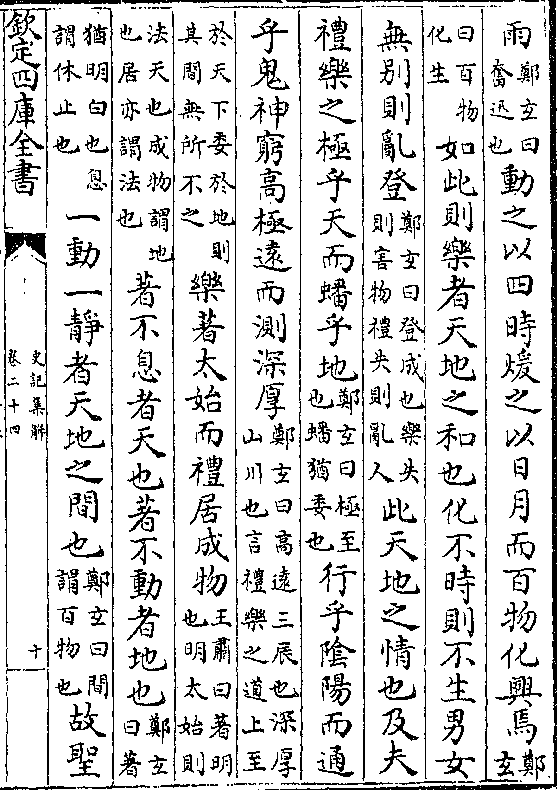 雨鄭玄曰奮迅也動之以四時煖之以日月而百物化興焉鄭玄
曰百物化生如此則樂者天地之和也化不時則不生男女
無别則亂登鄭玄曰登成也樂失則害物禮失則亂人此天地之情也及夫
禮樂之極乎天而蟠乎地鄭玄曰極至也蟠猶委也行乎隂陽而通
乎鬼神窮高極遠而測深厚鄭玄曰高遠三辰也深厚山川也言禮樂之道上至
於天下委於地則其間無所不之樂著太始而禮居成物王肅曰著明也明太始則
法天也成物謂地也居亦謂法也著不息者天也著不動者地也鄭玄曰著
猶明白也息謂休止也一動一靜者天地之間也鄭玄曰間謂百物也故聖
欽定四庫全書
史記集解
卷二十四
十